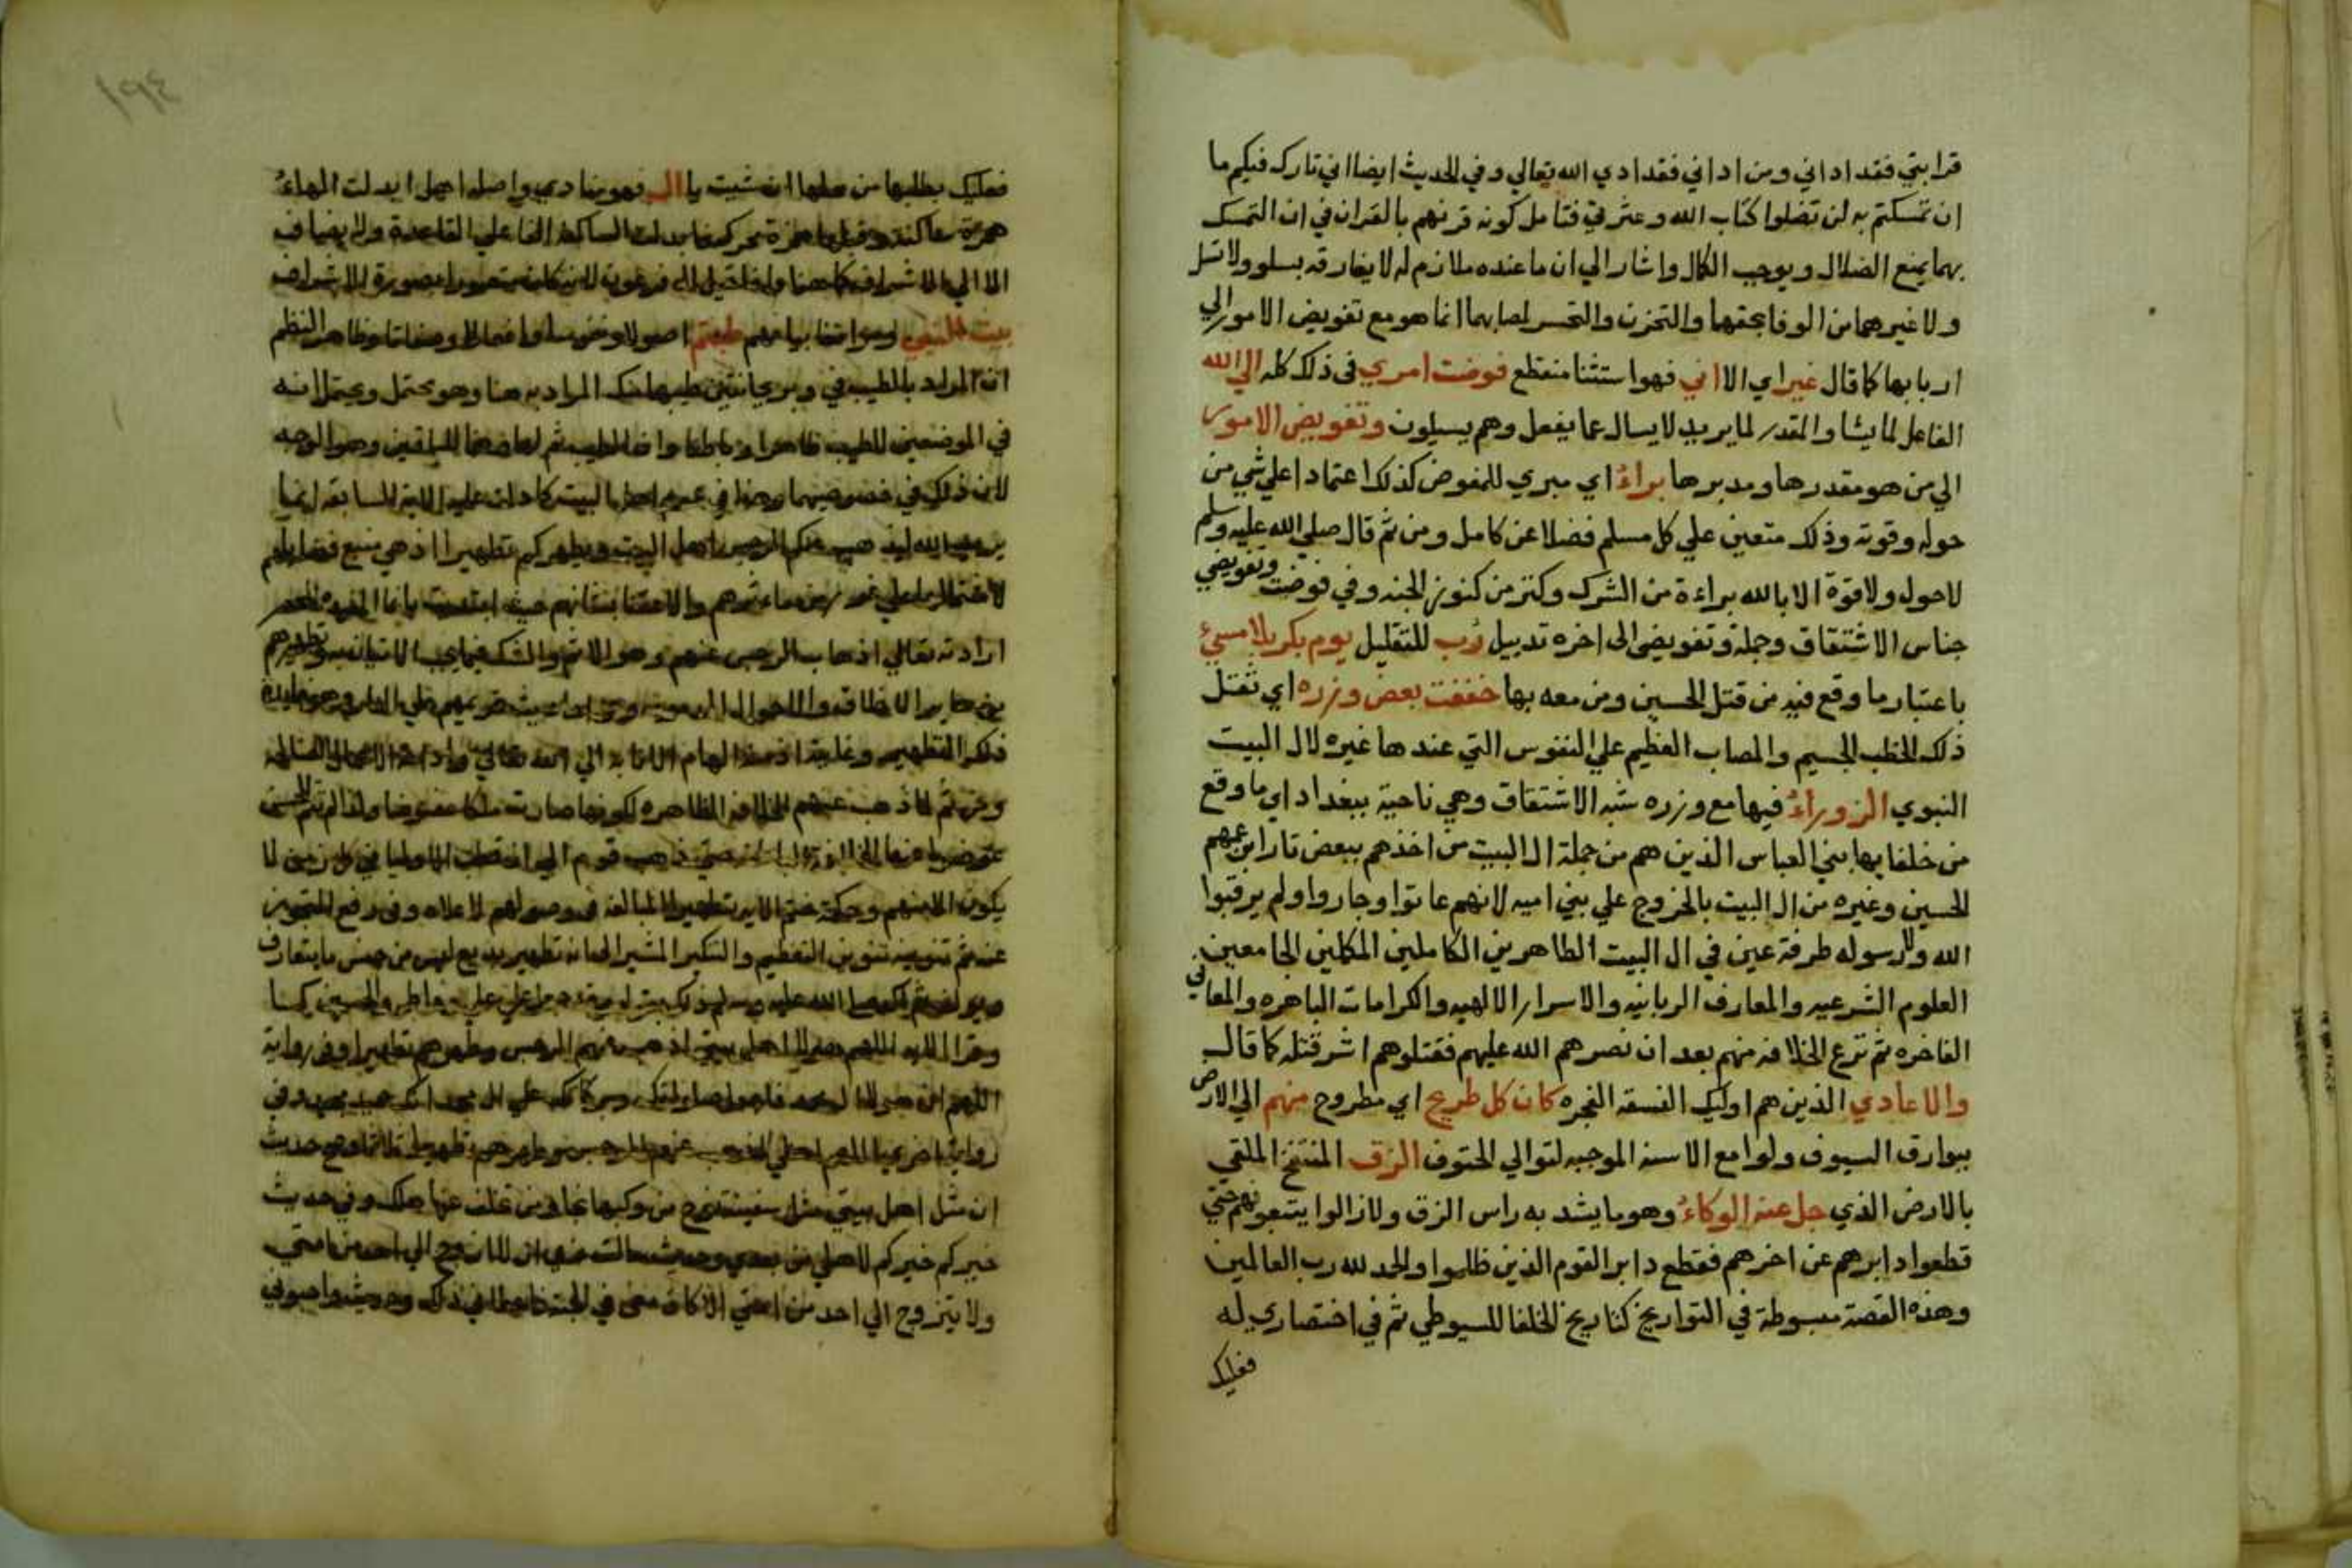 قرابتي فقد اذاني ومن اذاني فقد اذي الله تعالي وفي الحديث ايضا اني تارك فيكم ما
ان تمسكتم به لن تضلوا كتاب الله وعترتي فتامل كونه قرنهم بالقران في ان التمسك
بهما يمنع الضلال ويوجب الكمال واشار الي ان ما عنده ملازم له لا يفارقه بسلو ولا تسل
ولا غيرهما من الوفا بحقهما والتحزن والتحسر لمصابهما انما هو مع تفويض الامور الي
اربابها كما قال غير اي الا اني فهو استثنا منقطع فوضت امري في ذلك كله الي الله
الفاعل لما يشا والمقدر لما يريد لا يسال عما يفعل وهم يسيلون وتفويض الامور
الي من هو مقدرها ومدبرها براء اي مبري للمفوض كذلك اعتمادا علي شي من
حوله وقوته وذلك متعين علي كل مسلم فضلا عن كامل ومن ثم قال صلي الله عليه وسلم
لاحول ولا قوة الا بالله براءة من الشرك وكنز من كنوز الجنه وفي فوضت وتفويضي
جناس الاشتقاق وجملة وتفويضي الي اخره تدييل رب للتقليل يوم بكربلا مسيء
باعتبار ما وقع فيه من قتل الحسين ومن معه بها خففت بعض وزره اي ثقل
ذلك الخطب الجسيم والمصاب العظيم علي النفوس التي عندها غيرة لال البيت
النبوي الزوراء فيها مع وزره شبه الاشتقاق وهي ناحية ببغداد اي ما وقع
من خلفايها بني العباس الذين هم من جملة ال البيت من اخذهم ببعض ثار ابن عمهم
الحسين وغيره من ال البيت بالخروج علي بني اميه لانهم عاثوا وجاروا ولم يرقبوا
الله ولا رسوله طرفة عين في ال البيت الطاهرين الكاملين المكملين الجامعين
العلوم الشرعيه والمعارف الربانيه والاسرار الالهيه والكرامات الباهره والمعالي
الفاخره ثم نزع الخلافه منهم بعد ان نصرهم الله عليهم فقتلوهم اشر قتله كما قال
والاعادي الذين هم اوليك الفسقه الفجره كان كل طريح اي مطروح منهم الي الارض
ببوارق السيوف ولوامع الاسنه الموجبه لتوالي الحتوف الزق المنتفخ الملقي
بالارض الذي حل عنه الوكاء وهو ما يشد به راس الزق ولا زالوا يتبعونهم حتي
قطعوا دابرهم عن اخرهم فقطع دابر القوم الذين ظلموا والحمد لله رب العالمين
وهذه القصة مبسوطة في التواريخ كتاريخ الخلفا للسيوطي ثم في اختصاري له
فعليك
١٩٤
فعليك بطلبها من محلها ان شيت يا ال فهو منادي واصله اهل ابدلت الهاء
همزة ساكنة وقبلها همزة متحركه فابدلت الساكنة الفا علي القاعدة ولا يضاف
الا الي الاشراف كما هنا وانما قيل ال فرعون
بيت النبي طبتم وظاهر النظم
ان المراد بالطيب في المراد به هنا وهو محتمل ويحتمل انه
في الموضعين للطيب ظاهرا وباطنا وهو الاوجه
لان ذلك في كما دلت عليه الاية السابقه انما
يريد الله ليذهب عنكم الرجس اهل البيت ويطهركم تطهيرا اذ هي منبع فضايلهم
لاشتمالها علي غرر من ماثرهم والاعتنا بشانهم حيث ابتديت بانما المفيده لحصر
ارادته تعالي اذهاب الرجس عنهم وهو الاثم والشك فيما يجب الايمان به وتطهيرهم
من ساير الاخلاق والاحوال المذمومه تحريمهم علي النار وهو فايدة
ذكر التطهير وغايته اذ منه الهام الانابه الي الله تعالي وادامة الاعمال الصالحه
ومن ثم لما ذهب عنهم الخلافه الظاهره لكونها صارت ملكا عضوضا ولذا لم تتم للحسن
عوضوا عنها الخلافة الباطنة حتي ذهب قوم الي ان قطب الاوليا في كل زمن لا
يكون الا منهم وحكمة ختم الاية بتطهيرا المبالغه في وصولهم لاعلاه وفي رفع التجوز
عنه ثم تنوينه تنوين التعظيم والتكثير المشير الي انه تطهير بديع ليس من جنس ما يتعارف
صلي الله عليه وسلم علي فاطمه والحسنين كسا
وقرا الايه اللهم هولا اهل بيتي اذهب عنهم الرجس وطهرهم تطهيرا وفي رواية
اللهم ان هولا ال محمد فاجعل صلواتك وبركاتك علي ال محمد انك حميد مجيد وفي
رواية اخري اللهم اهلي اذهب عنهم الرجس وطهرهم تطهيرا ثلاثا وصح حديث
ان مثل اهل بيتي مثل سفينة نوح من ركبها نجا ومن تخلف عنها هلك وفي حديث
خيركم خيركم لاهلي من بعدي وحديث سالت ربي ان لا اتزوج الي احد من امتي
ولا يتزوج الي احد من امتي الا كان معي في الجنة فاعطاني ذلك وحديث واحبوني